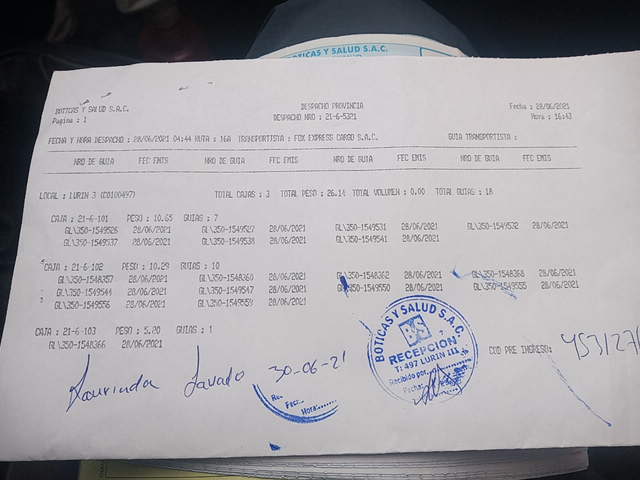 BOTICAS Y SALUD S.A.C.
BOTICAS Y SALUD S.A.C.
Pagina : 1
DESPACHO PROVINCIA
DESPACHO NRO : 21-6-5321
Fecha : 28/06/2021
Hora : 16:43
FECHA Y HORA DESPACHO : 28/06/2021 04:44 RUTA : 16A TRANSPORTISTA : FOX EXPRESS CARGO S.A.C. GUIA TRANSPORTISTA :
NRO DE GUIA FEC EMIS NRO DE GUIA FEC EMIS NRO DE GUIA FEC EMIS NRO DE GUIA FEC EMIS
LOCAL : LURIN 3 (C0100497) TOTAL CAJAS : 3 TOTAL PESO : 26.14 TOTAL VOLUMEN : 0.00 TOTAL GUIAS : 18
CAJA : 21-6-101 PESO : 10.65 GUIAS : 7
GL\350-1549526 28/06/2021 GL\350-1549527 28/06/2021 GL\350-1549531 28/06/2021 GL\350-1549532 28/06/2021
GL\350-1549537 28/06/2021 GL\350-1549538 28/06/2021 GL\350-1549541 28/06/2021
CAJA : 21-6-102 PESO : 10.29 GUIAS : 10
GL\350-1548357 28/06/2021 GL\350-1548360 28/06/2021 GL\350-1548362 28/06/2021 GL\350-1548368 28/06/2021
GL\350-1549544 28/06/2021 GL\350-1549547 28/06/2021 GL\350-1549550 28/06/2021 GL\350-1549555 28/06/2021
GL\350-1549556 28/06/2021 GL\350-1549559 28/06/2021
CAJA : 21-6-103 PESO : 5.20 GUIAS : 1
GL\350-1548366 28/06/2021
BOTICAS Y SALUD S.A.C.
BS
RECEPCION
T: 497 LURIN III
Recibido por:
Fecha:
COD PRE INGRESO:
Lavado
30-06-21
Hora: